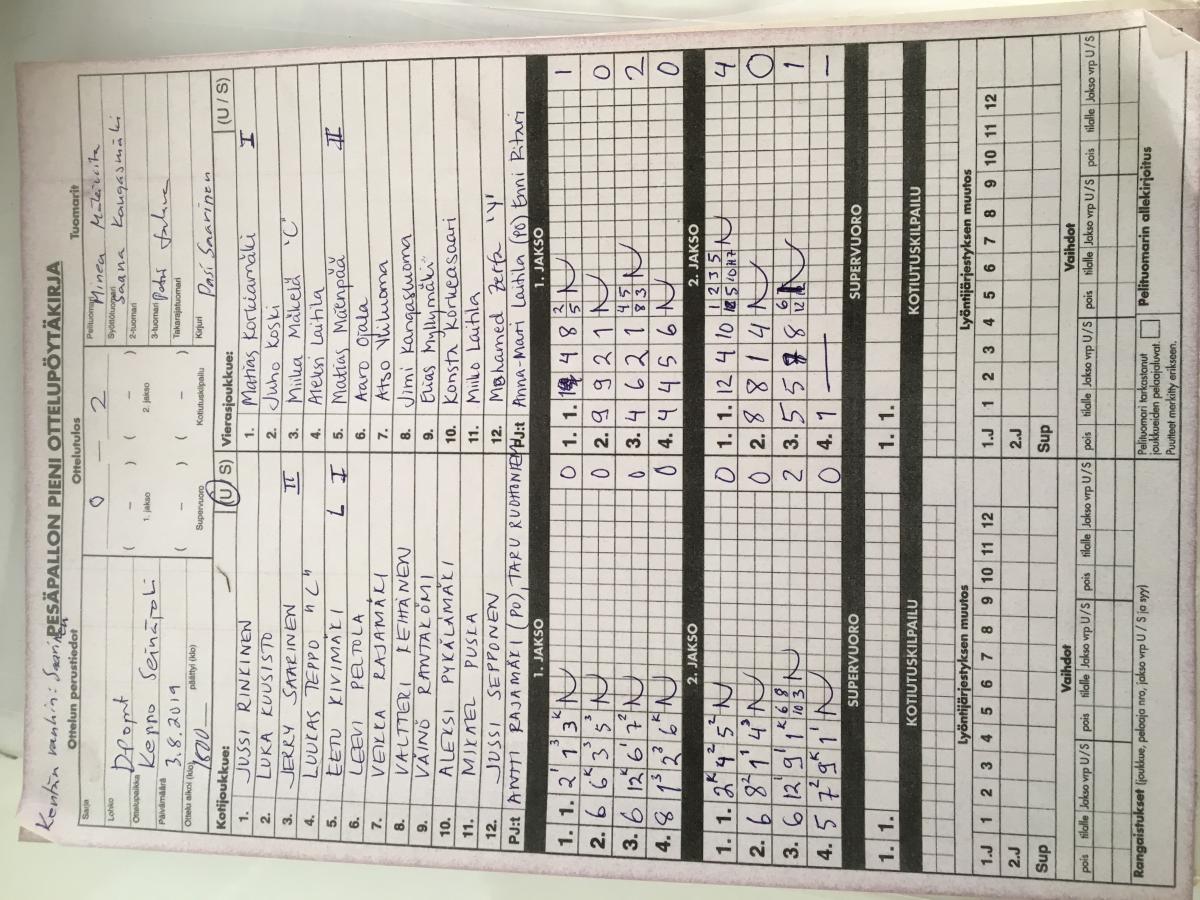 Kentän vanhin: Saarinen
PESÄPALLON PIENI OTTELUPÖYTÄKIRJA
Ottelun perustiedot
Ottelutulos
Tuomarit
Sarja
D-pojat
Lohko
Ottelupaikka
Keppo Seinäjoki
Päivämäärä
3.8.2019
Ottelu alkoi (klo)
1800
päättyi (klo)
0 – 2
( – ) ( – )
1. jakso
2. jakso
( – ) ( – )
Supervuoro
Kotiutuskilpailu
Pelituomari
Minea Mäkiviita
Syöttötuomari
Saana Kangasmäki
2-tuomari
3-tuomari
Petri
Takarajatuomari
Kirjuri
Pasi Saarinen
Kotijoukkue:
(U / S)
1. JUSSI RINKINEN
2. LUKA KUUSISTO
3. JERRY SAARINEN II
4. LUUKAS TEPPO "C"
5. EETU KIVIMÄKI L I
6. LEEVI PELTOLA
7. VEIKKA RAJAMÄKI
8. VALTTERI KEIHÄNEN
9. VÄINÖ RANTAKÖMI
10. ALEKSI PYKÄLÄMÄKI
11. MIKAEL PUSKA
12. JUSSI SEPPONEN
PJ:t ANTTI RAJAMÄKI (PO), TARU RUOHONIEMI
Vierasjoukkue:
(U / S)
1. Matias Korkiamäki I
2. Juho Koski
3. Miika Mäkelä "C"
4. Aleksi Laitila
5. Matias Mäenpää II
6. Aaro Ojala
7. Atso Ylihuoma
8. Jimi Kangasluoma
9. Elias Myllymäki
10. Konsta Korkeasaari
11. Miiko Laitila
12. Mohamed Zerfa "y"
PJ:t Anna-Mari Laitila (PO) Enni Ritari
1. JAKSO
1. 1. 2¹ 1³ 3ᴷ N 0
2. 6 6ᴷ 3³ 5³ N 0
3. 6 12ᴷ 6¹ 7² N 0
4. 8 1³ 2³ 6ᴷ N 0
1. JAKSO
1. 1. 4 8 2 5 N 1
2. 9 9 2 1 N 0
3. 4 6 2 1 4 5 8 3 N 2
4. 4 4 5 6 N 0
2. JAKSO
1. 1. 2ᴷ 4² 5² N 0
2. 6 8² 1¹ 4³ N 0
3. 6 12¹ 9¹ 1ᴷ 6 8 10 3 N 2
4. 5 7² 9ᴷ 1¹ N 0
2. JAKSO
1. 1. 12 4 10 1 2 3 5 N 4
2. 8 8 1 4 N 0
3. 5 5 8 N 1
4. 1 — –
SUPERVUORO
1. 1.
SUPERVUORO
1. 1.
KOTIUTUSKILPAILU
KOTIUTUSKILPAILU
Lyöntijärjestyksen muutos
1.J 1 2 3 4 5 6 7 8 9 10 11 12
2.J
Sup
Lyöntijärjestyksen muutos
1.J 1 2 3 4 5 6 7 8 9 10 11 12
2.J
Sup
Vaihdot
pois tilalle Jakso vrp U / S pois tilalle Jakso vrp U / S pois tilalle Jakso vrp U / S
Vaihdot
pois tilalle Jakso vrp U / S pois tilalle Jakso vrp U / S pois tilalle Jakso vrp U / S
Rangaistukset (joukkue, pelaaja nro, jakso vrp U / S ja syy)
Pelituomari tarkastanut
joukkueiden pelaajaluvat.
Puutteet merkitty erikseen.
Pelituomarin allekirjoitus